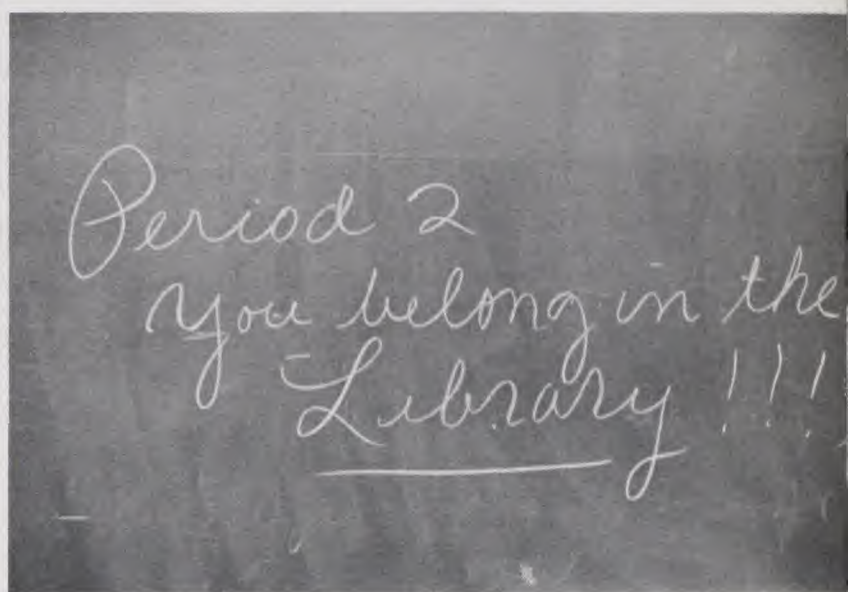 Period 2
you belong in the
Library !!!